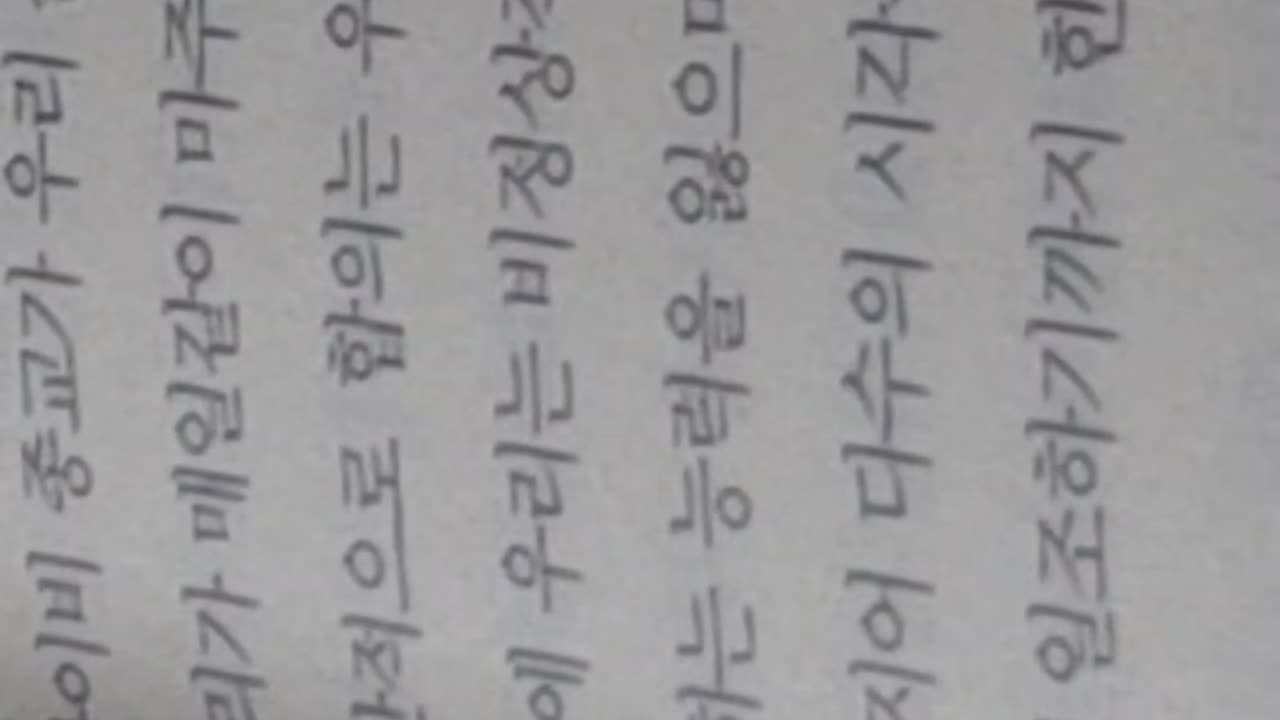 이비 종교가 우리
리가 매일같이 마주
적으로 합의는 우
에 우리는 비정상
하는 능력을 잃으
지어 다수의 시각
일조하기까지 한